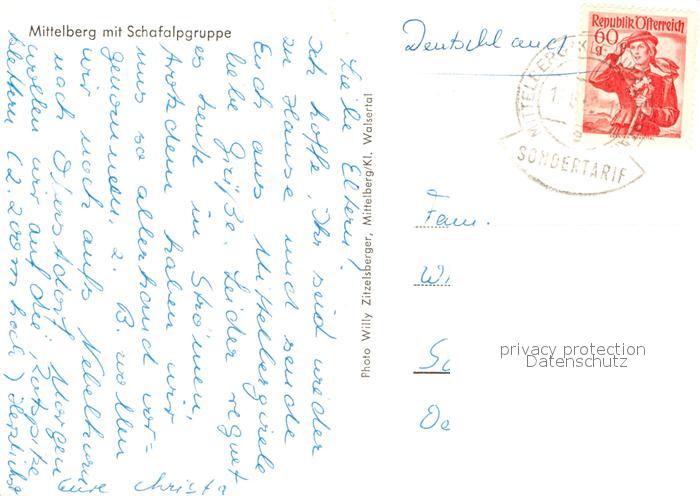 Mittelberg mit Schafalpgruppe
Liebe Eltern!
Ich hoffe, Ihr seid wieder
zu Hause und sende
Euch aus Mittelberg viele
liebe Grüße. Leider regnet
es heute in Strömen,
trotzdem haben wir
uns so allerhand vor-
genommen. Z. B. wollen
wir noch aufs Nebelhorn
nach Oberstdorf. Morgen
wollen wir auf die
klettern (2.200m hoch) Herzlichst
Eure Christa
Photo Willy Zitzelsberger, Mittelberg/Kl. Walsertal
Deutschland
Republik Österreich
60
g
MITTELBERG
SONDERTARIF
Fam.
Wi
Sc
De
privacy protection
Datenschutz